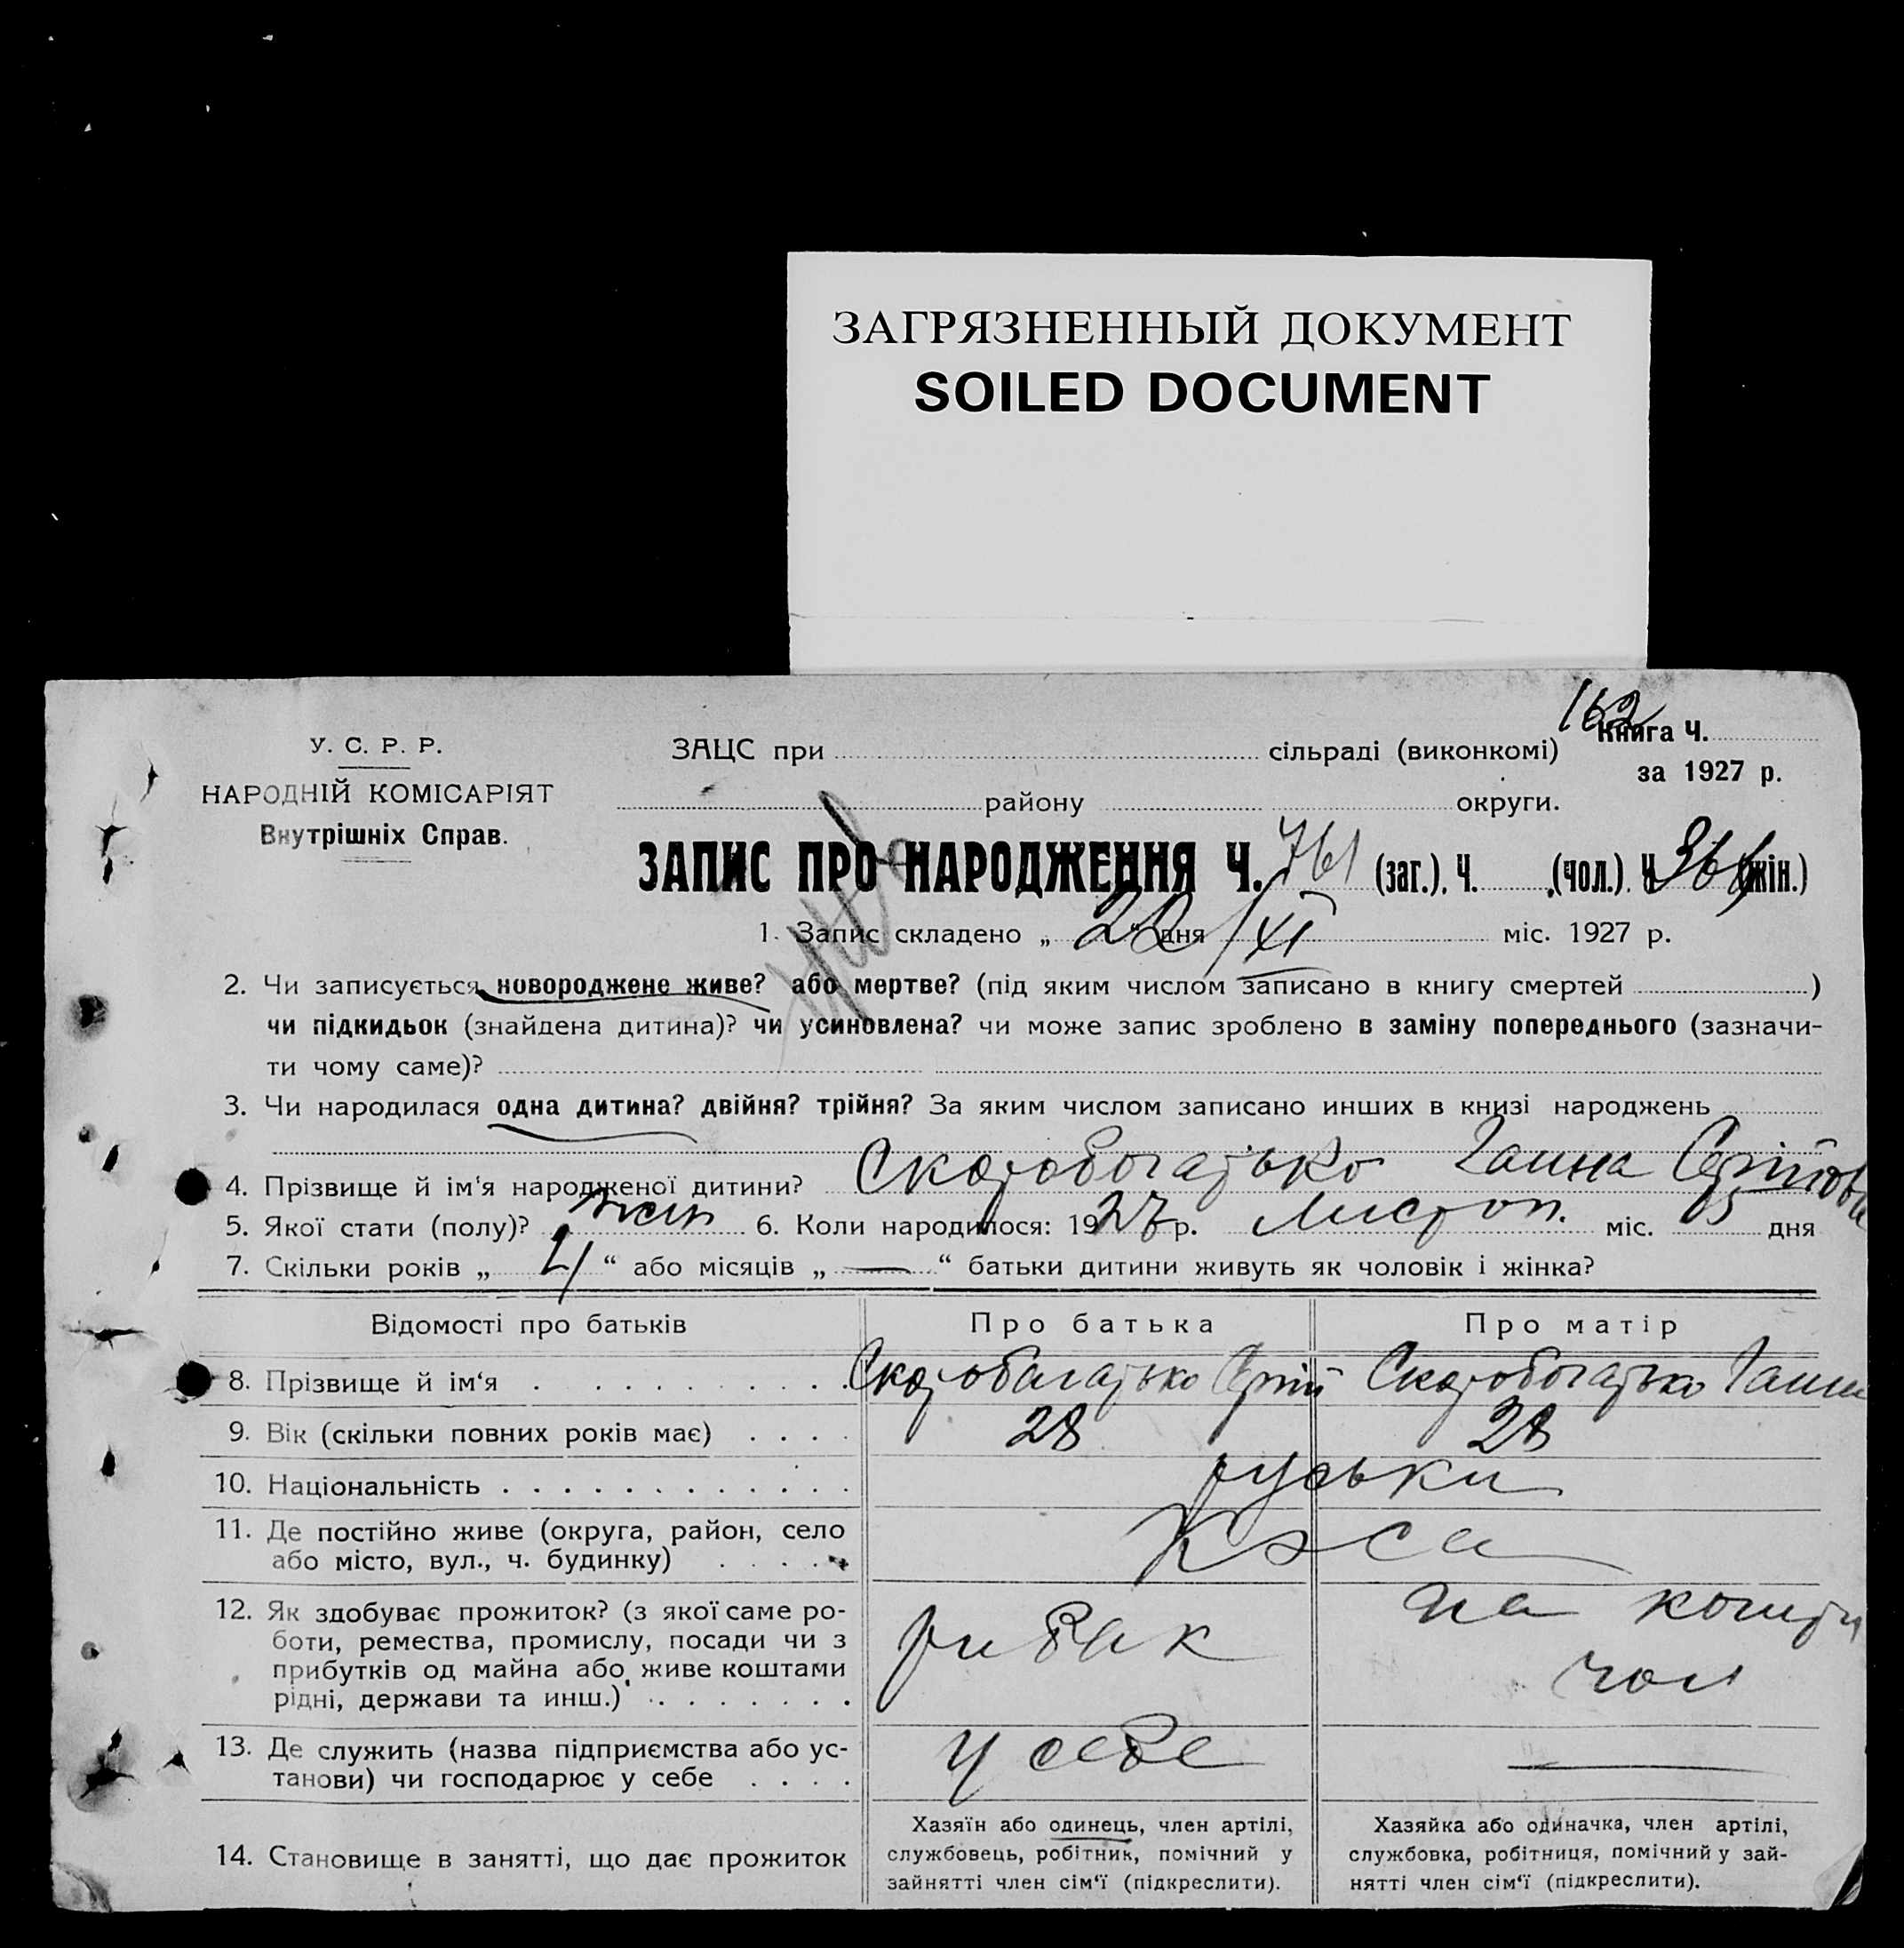 ЗАГРЯЗНЕННЫЙ ДОКУМЕНТ
SOILED DOCUMENT
162
У. С. Р. Р.
НАРОДНІЙ КОМІСАРІЯТ
Внутрішніх Справ.
ЗАЦС при сільраді (виконкомі)
Книга Ч.
за 1927 р.
району округи.
ЗАПИС ПРО НАРОДЖЕННЯ Ч. 761 (заг.). Ч. (чол.). Ч (жін.)
1. Запис складено „ 22 “ дня XI міс. 1927 р.
2. Чи записується новороджене живе? або мертве? (під яким числом записано в книгу смертей )
чи підкидьок (знайдена дитина)? чи усиновлена? чи може запис зроблено в заміну попереднього (зазначи-
ти чому саме)?
3. Чи народилася одна дитина? двійня? трійня? За яким числом записано инших в книзі народжень
4. Прізвище й ім'я народженої дитини? Скоробогатько Ганна Сергіївна
5. Якої стати (полу)? жін 6. Коли народилося: 1927 р. Листоп. міс. 15 дня
7. Скільки років „ 4 “ або місяців „ — “ батьки дитини живуть як чоловік і жінка?
Відомості про батьків Про батька Про матір
8. Прізвище й ім'я Скоробагатько Сергій Скоробогатько Ганна
9. Вік (скільки повних років має) 28 28
10. Національність руськи
11. Де постійно живе (округа, район, село
або місто, вул., ч. будинку)
12. Як здобуває прожиток? (з якої саме ро-
боти, ремества, промислу, посади чи з
прибутків од майна або живе коштами
рідні, держави та инш.)
рибак
на кошти
чол
13. Де служить (назва підприємства або ус-
танови) чи господарює у себе
у себе
—
14. Становище в занятті, що дає прожиток
Хазяїн або одинець, член артілі,
службовець, робітник, помічний у
зайнятті член сім'ї (підкреслити).
Хазяйка або одиначка, член артілі,
службовка, робітниця, помічний у зай-
нятті член сім'ї (підкреслити).